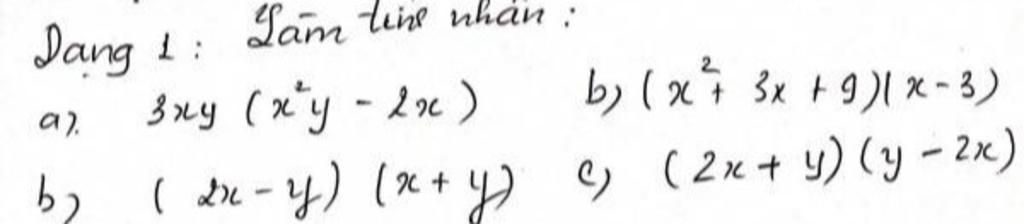 Dạng 1: Làm tính nhân:
a). 3xy (x²y - 2x) b) (x² + 3x + 9)(x - 3)
b) (2x - y) (x + y) c) (2x + y) (y - 2x)